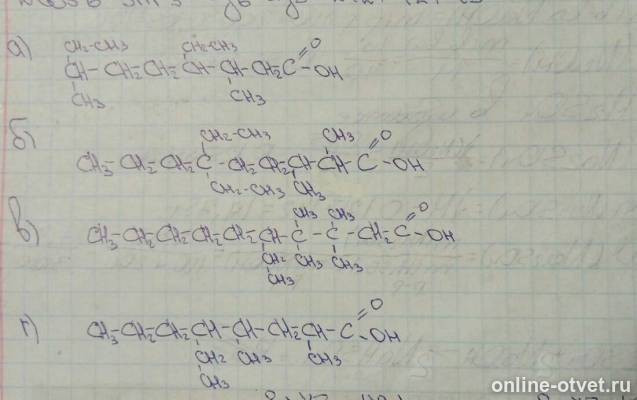 CH2-CH3 CH2-CH3
а) CH-CH2-CH2-CH-CH-CH2-C=O-OH
CH3 CH3
CH2-CH3 CH3
б) CH3-CH2-CH2-C-CH2-CH2-CH-CH-C=O-OH
CH2-CH3 CH3
CH3 CH3
в) CH3-CH2-CH2-CH2-CH2-CH-C-C-CH2-C=O-OH
CH2 CH3 CH3
CH3
г) CH3-CH2-CH2-CH-CH-CH2-CH-C=O-OH
CH2 CH3 CH3
CH3
online-otvet.ru